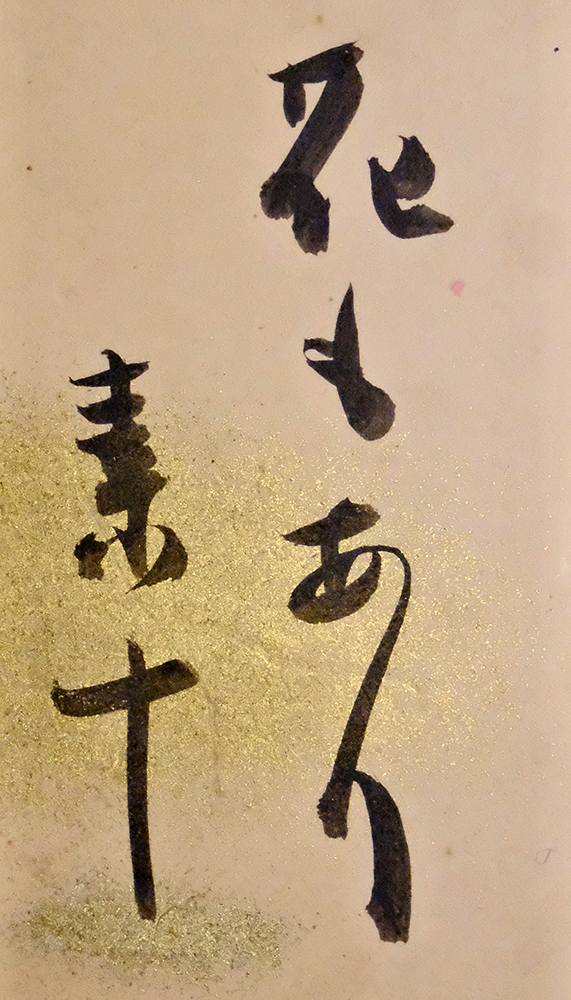 花もあり
素十